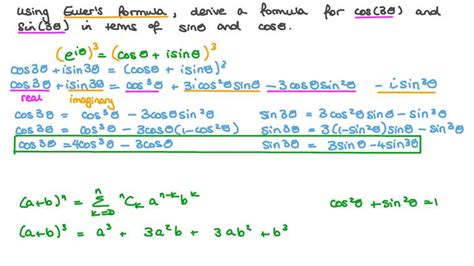 Using Euler's formula, derive a formula for cos(3θ) and
sin(3θ) in terms of sinθ and cosθ.
(e^{iθ})³ = (cosθ + isinθ)³
cos3θ + isin3θ = (cosθ + isinθ)³
cos3θ + isin3θ = cos³θ + 3icos²θsinθ - 3cosθsin²θ - isin³θ
real imaginary
cos3θ = cos³θ - 3cosθsin²θ sin3θ = 3cos²θsinθ - sin³θ
cos3θ = cos³θ - 3cosθ(1-cos²θ) sin3θ = 3(1-sin²θ)sinθ - sin³θ
cos3θ = 4cos³θ - 3cosθ sin3θ = 3sinθ - 4sin³θ
(a+b)ⁿ = Σ_{k=0}^{n} ⁿCₖ a^{n-k} b^k cos²θ + sin²θ = 1
(a+b)³ = a³ + 3a²b + 3ab² + b³